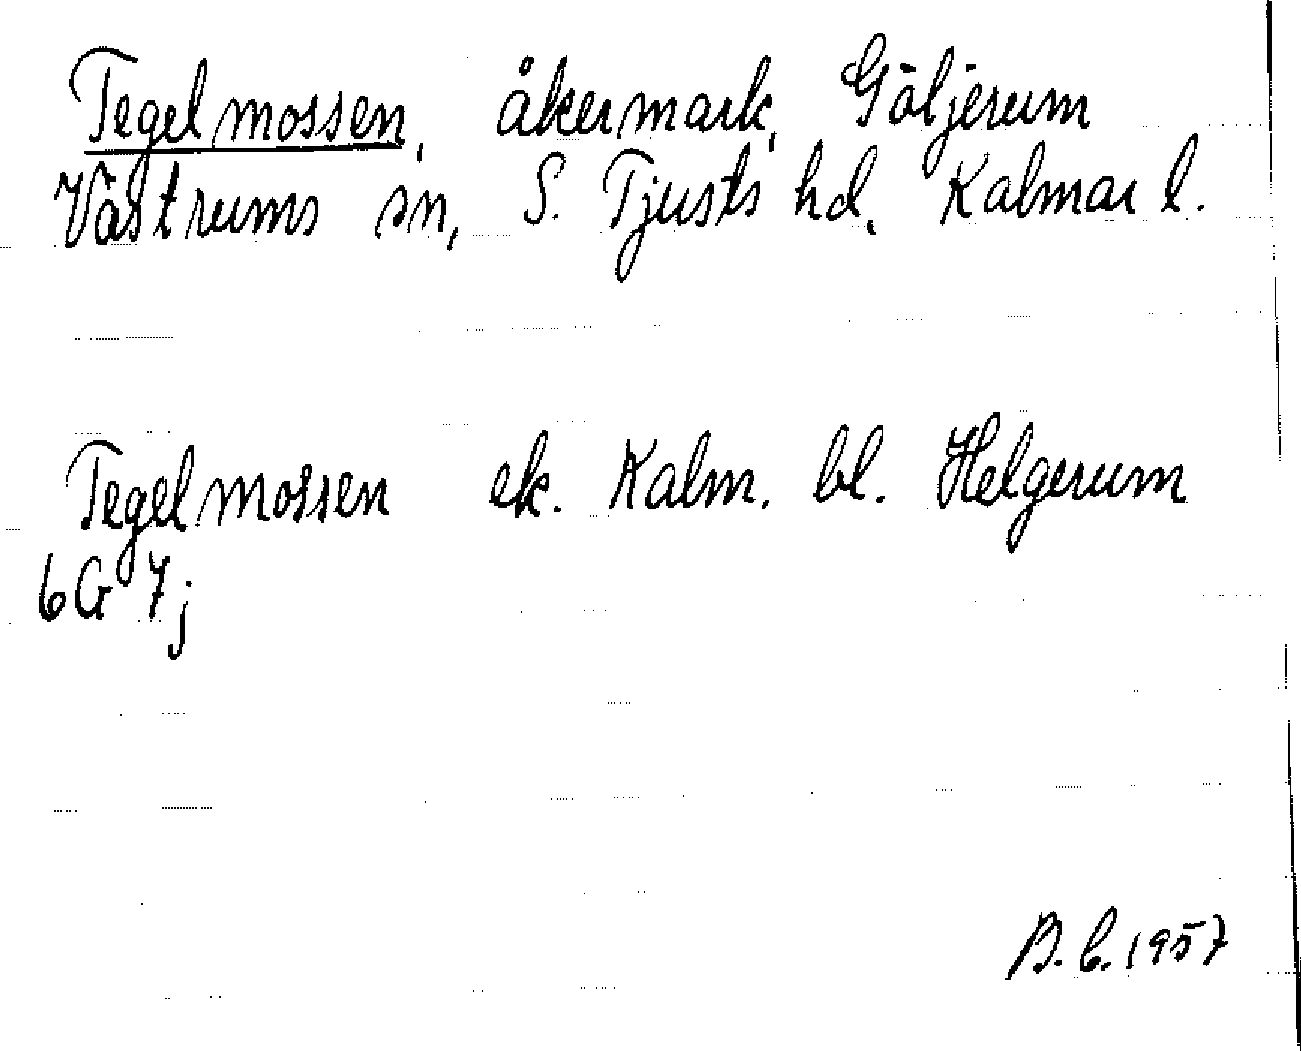 Tegelmossen, åkermark, Göljerum
Västrums sn, S. Tjusts hd, Kalmar l.
Tegelmossen ek. Kalm. bl. Helgerum
6G 7j
B.C. 1957